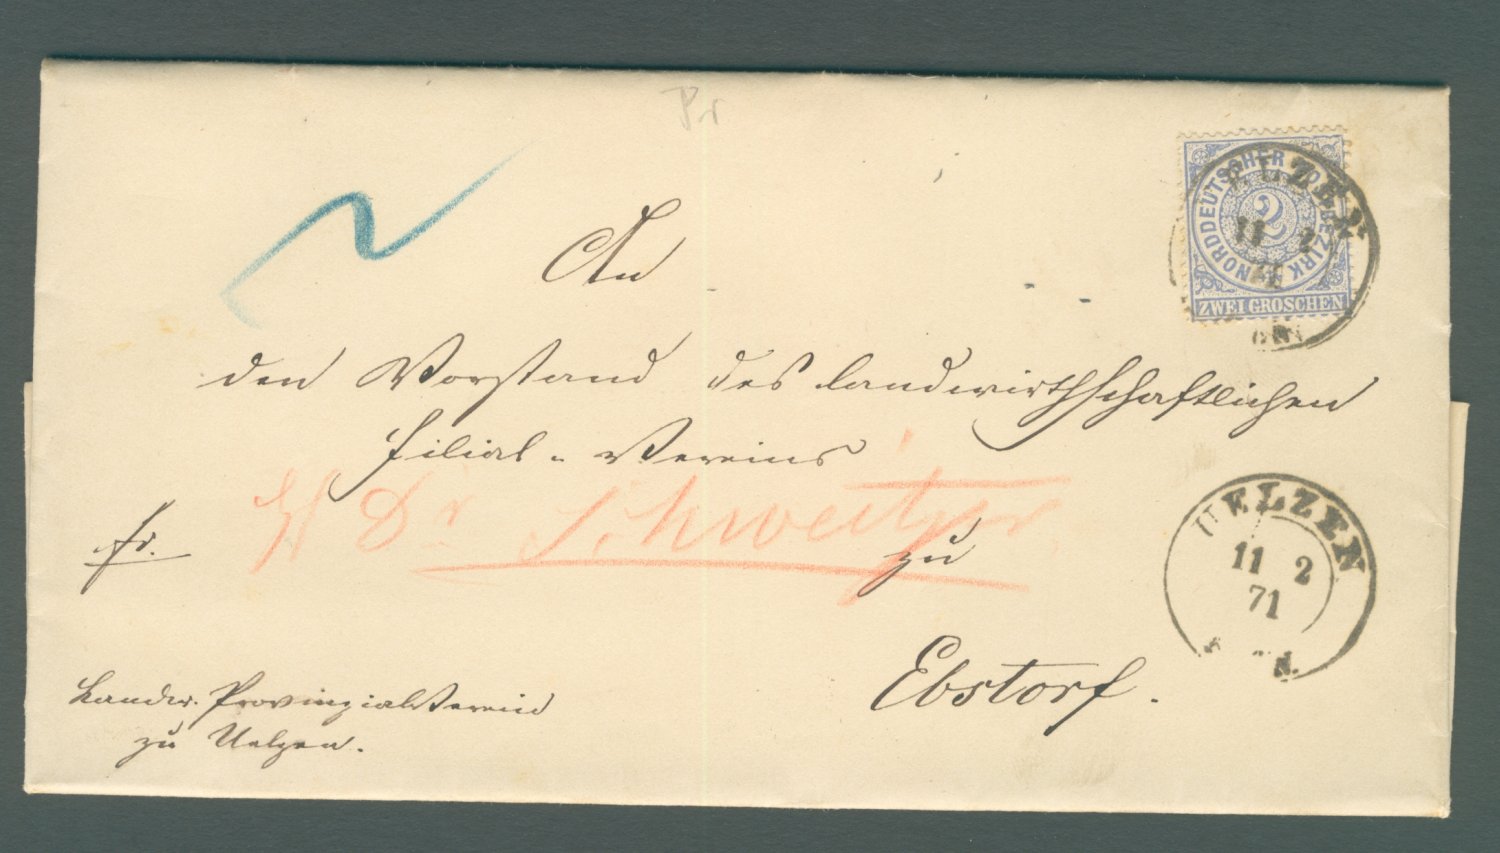 Pr
NORDDEUTSCHER POSTBEZIRK
2
ZWEI GROSCHEN
UELZEN
11 2
2
An
den Vorstand des landwirthschaftlichen
Filial-Vereins
H Dr Schweitzer
fr.
zu
Ebstorf.
UELZEN
11 2
71
N.
Landw. Provinzial-Verein
zu Uelzen.